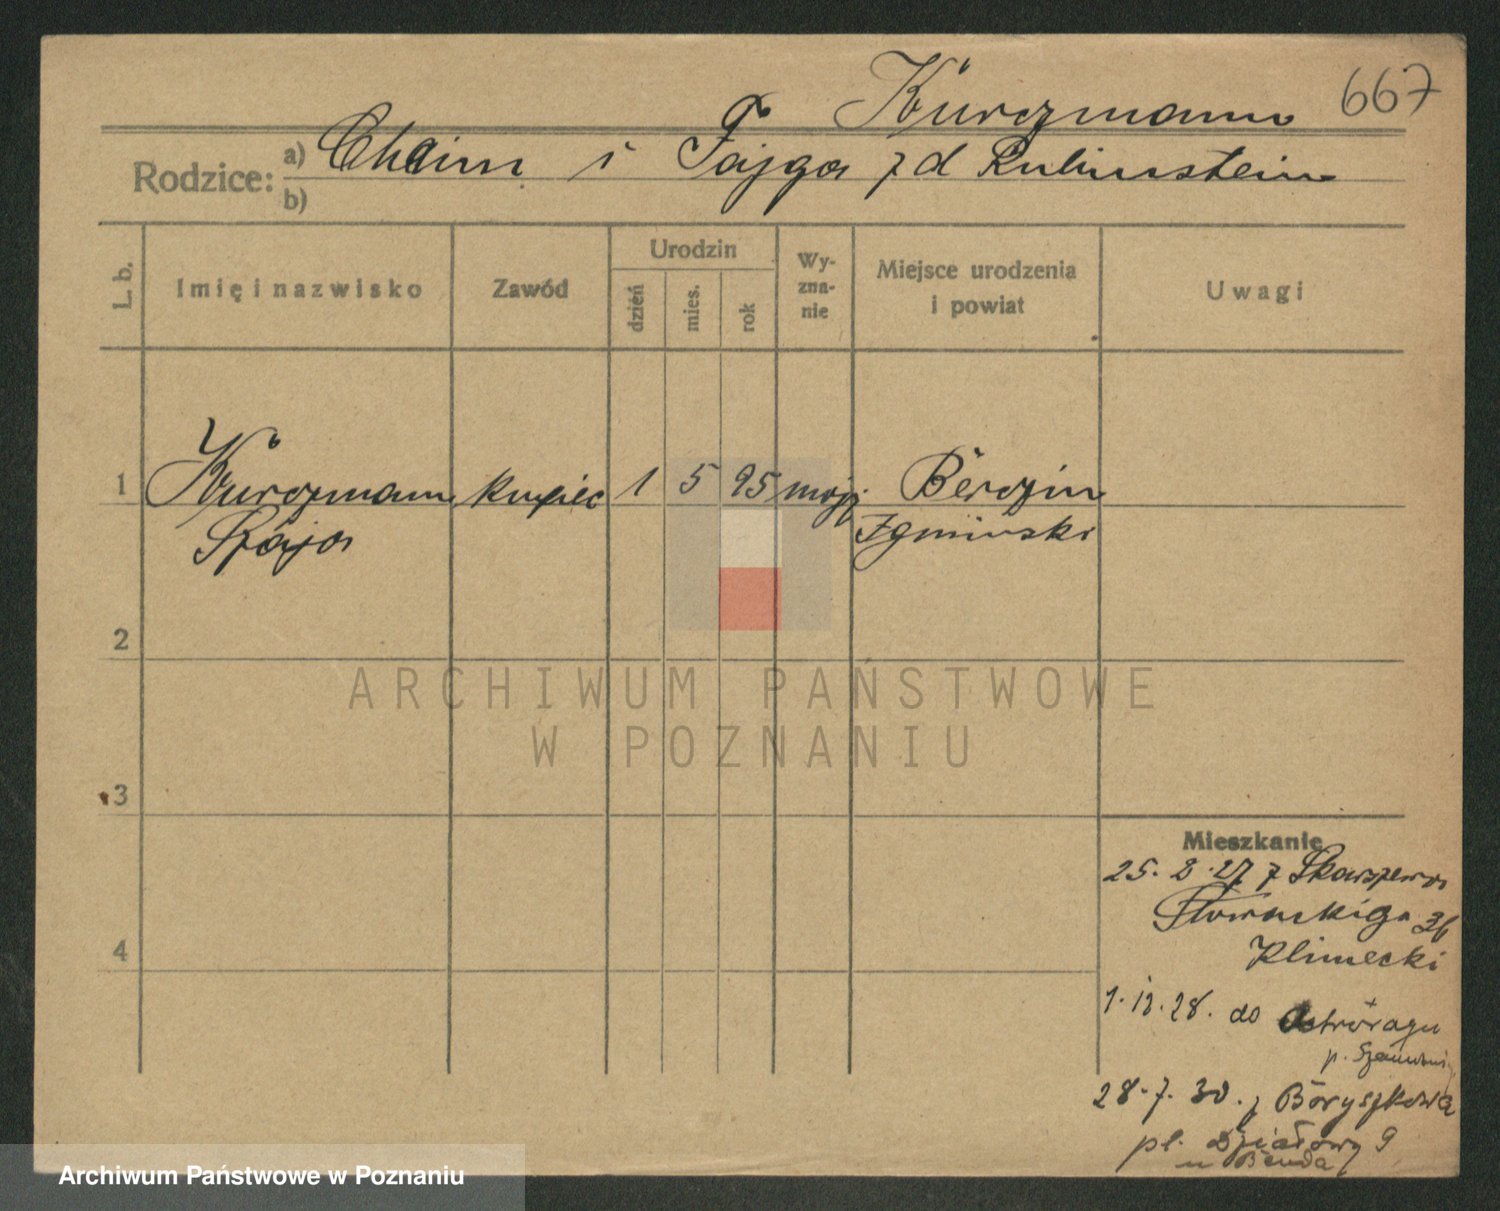 Kurczmann 667
Rodzice: a) Chaim i Fajga z d Rubinstein
b)
L. b. Imię i nazwisko Zawód Urodzin dzień mies. rok Wy-zna-nie Miejsce urodzenia i powiat Uwagi
1 Kurczmann kupiec 1 5 95 mojż Berczin
Szaja
2
ARCHIWUM PAŃSTWOWE
W POZNANIU
3
Mieszkanie
25. 2. 27 z
Słowackiego
4
Klimecki
1. 12. 28. do Ostroroga
28. 7. 30. z Boryszkowa
pl. Działowy 9
u Benda
Archiwum Państwowe w Poznaniu